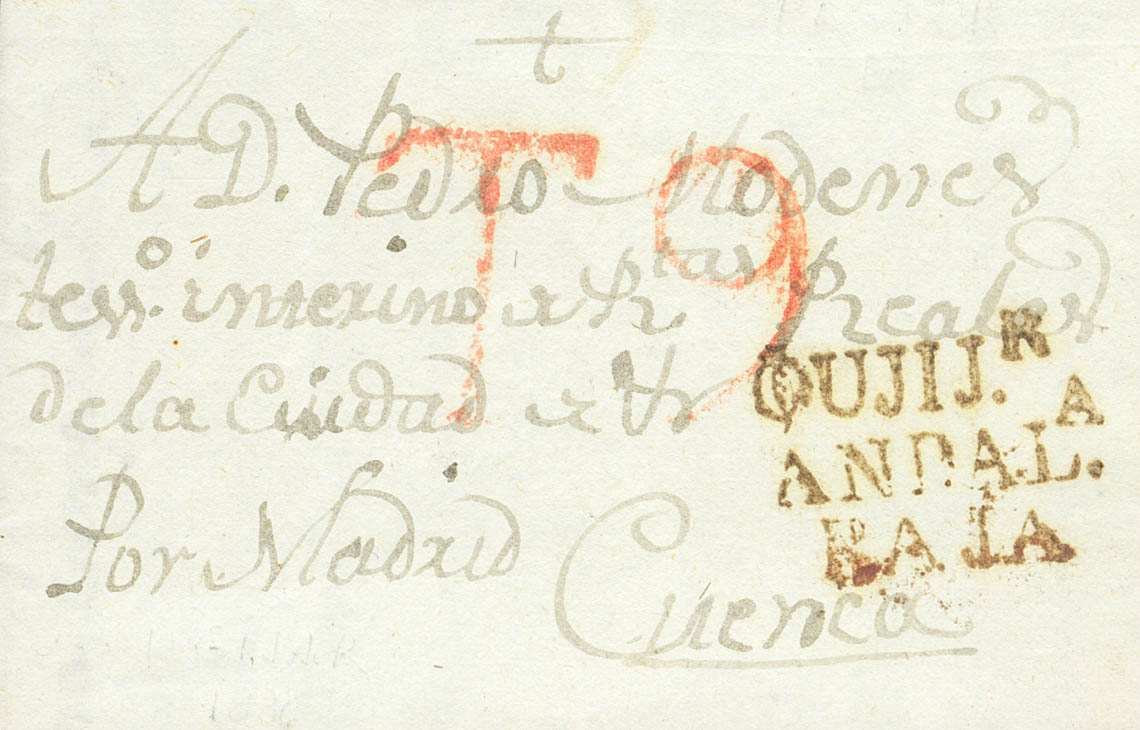 t
A D. Pedro Modenes
tesso. interino de Rtas Reales
de la Ciudad de
Por Madrid
Cuenca
T 9
QUJIJ.R
ANDAL.A
BAJA